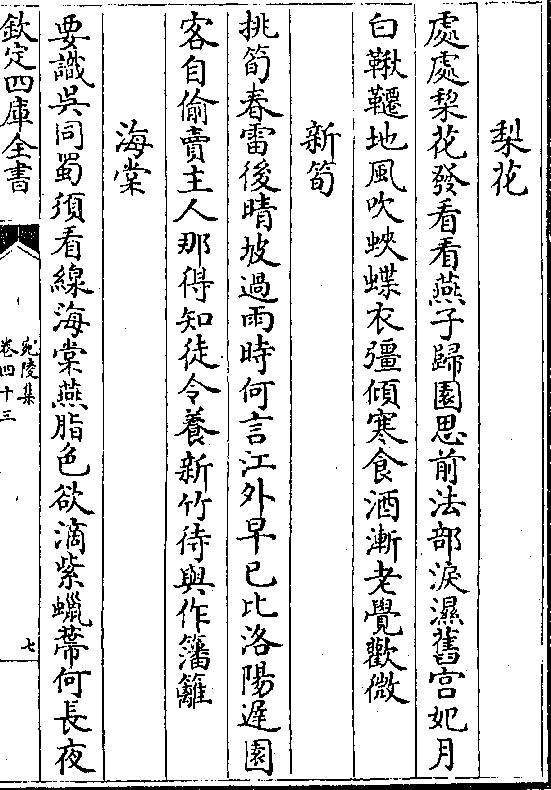 梨花
處處梨花發看看燕子歸園思前法部淚濕舊宮妃月
白鞦韆地風吹蛺蝶衣彊傾寒食酒漸老覺歡微
新筍
挑筍春雷後晴坡過雨時何言江外早已比洛陽遲園
客自偷賣主人那得知徒令養新竹待與作籓籬
海棠
要識吳同蜀須看線海棠燕脂色欲滴紫蠟蔕何長夜
欽定四庫全書
宛陵集
卷四十三
七